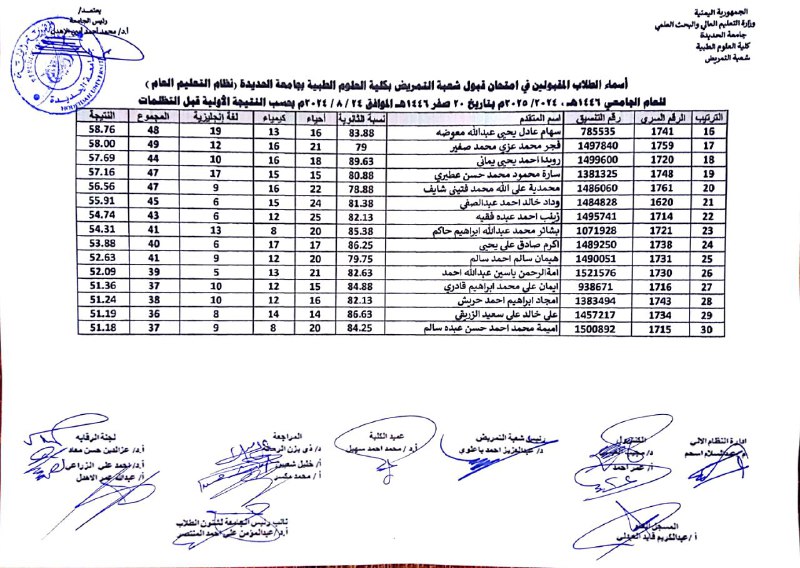 الجمهورية اليمنية
وزارة التعليم العالي والبحث العلمي
جامعة الحديدة
كلية العلوم الطبية
شعبة التمريض
يعتمد/
رئيس الجامعة
أ.د/ محمد أحمد الأهدل
HODEIDAH UNIVERSITY
أسماء الطلاب المقبولين في امتحان قبول شعبة التمريض بكلية العلوم الطبية بجامعة الحديدة (نظام التعليم العام)
للعام الجامعي ١٤٤٦هـ، ٢٠٢٥/٢٠٢٤م بتاريخ ٢٠ صفر ١٤٤٦هـ الموافق ٢٤ / ٨ / ٢٠٢٤م بحسب النتيجة الأولية قبل التظلمات
الترتيب الرقم السري رقم التنسيق اسم المتقدم نسبة الثانوية أحياء كيمياء لغة إنجليزية المجموع النتيجة
16 1741 785535 سهام عادل يحيى عبدالله معوضه 83.88 16 13 19 48 58.76
17 1759 1497840 فجر محمد عزي محمد صغير 79 21 16 12 49 58.00
18 1720 1499600 رويدا احمد يحيى يماني 89.63 18 16 10 44 57.69
19 1748 1381325 سارة محمود محمد حسن عطيري 80.88 15 15 17 47 57.16
20 1761 1486060 محمدية على الله محمد فتيني شايف 78.88 22 16 9 47 56.56
21 1620 1484828 وداد خالد احمد عبدالصفي 81.38 24 15 6 45 55.91
22 1714 1495741 زينب احمد عبده فقيه 82.13 25 12 6 43 54.74
23 1721 1071928 بشائر محمد عبدالله ابراهيم حاكم 85.38 20 8 13 41 54.31
24 1738 1489250 اكرم صادق على يحيى 86.25 17 17 6 40 53.88
25 1731 1490051 هيمان سالم احمد سالم 79.75 20 12 9 41 52.63
26 1730 1521576 امة الرحمن ياسين عبدالله احمد 82.63 21 13 5 39 52.09
27 1716 938671 ايمان علي محمد ابراهيم قادري 84.88 15 12 10 37 51.36
28 1743 1383494 امجاد ابراهيم احمد حريش 82.13 16 12 10 38 51.24
29 1734 1457217 على خالد على سعيد الزريقي 86.63 14 14 8 36 51.19
30 1715 1500892 اميمة محمد احمد حسن عبده سالم 84.25 20 8 9 37 51.18
ادارة النظام الالي
الكنترول
رئيس شعبة التمريض
عميد الكلية
المراجعة
لجنة الرقابه
د/ عبدالعزيز احمد باعلوي
أ.د/ محمد احمد سهيل
أ.د/ عزالدين حسن معاد
أ/ عمر احمد
أ/ خليل شعبين
أ.د/ محمد علي الزراعي
أ/ عبدالله عمر الاهدل
المسجل العام
أ/ عبدالكريم قايد العبدلي
نائب رئيس الجامعة لشئون الطلاب
أ.د/ عبدالمؤمن علي احمد المنتصر